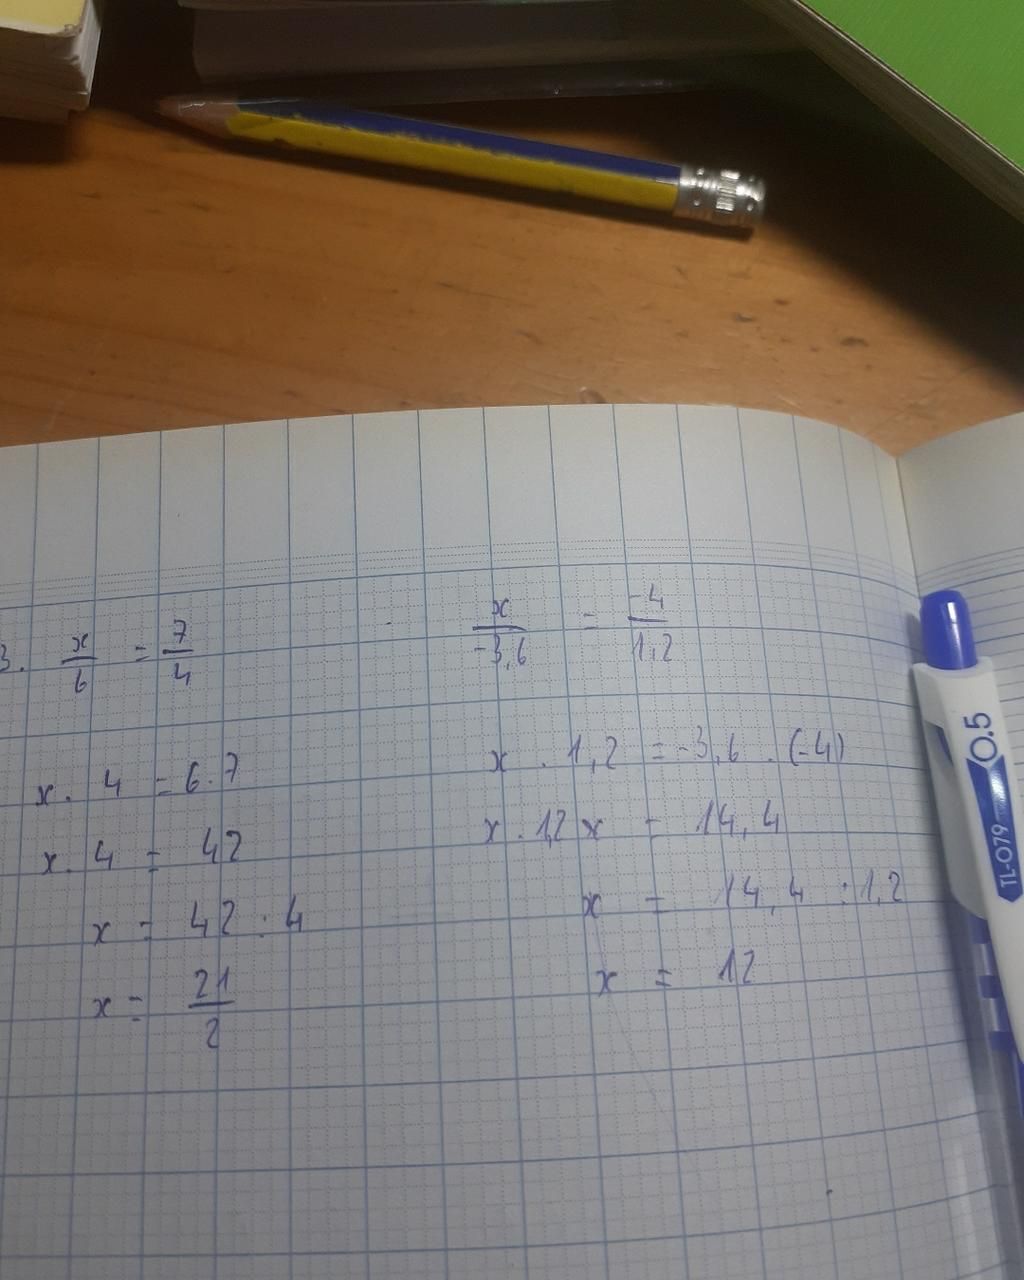 3. x/6 = 7/4
x . 4 = 6.7
x . 4 = 42
x = 42 : 4
x = 21/2
x/-3,6 = -4/1,2
x . 1,2 = -3,6 . (-4)
x . 1,2 x = 14,4
x = 14,4 : 1,2
x = 12
0.5
TL-079